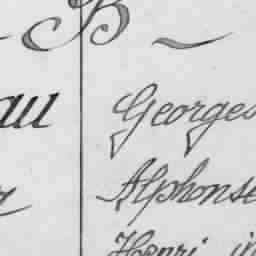 - B -
au Georges
Alphonse
Henri